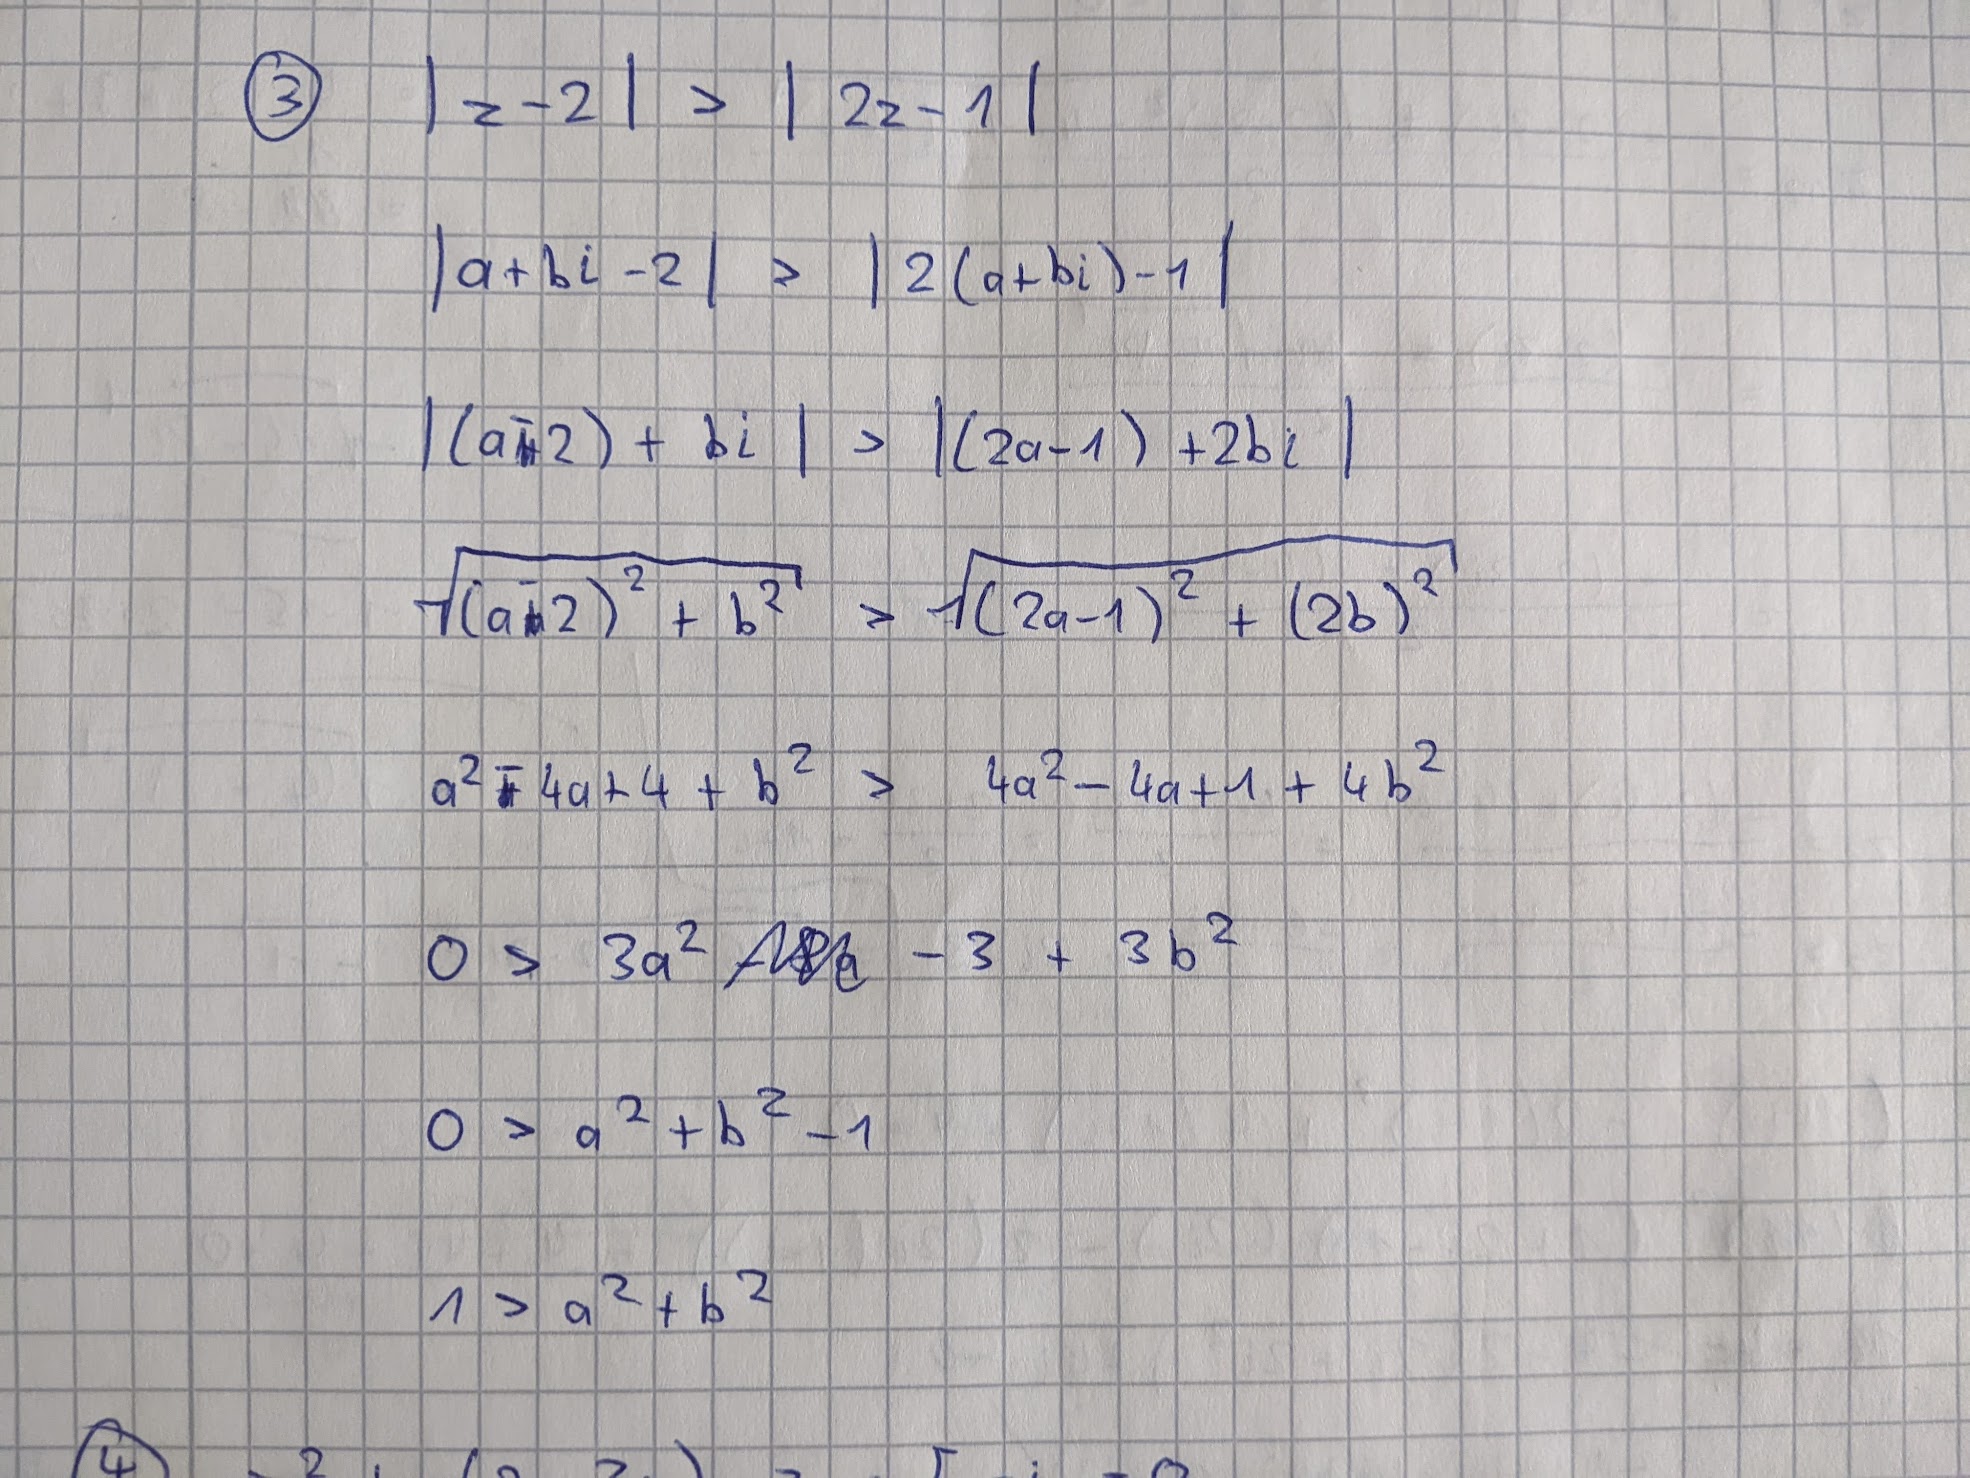 ③ |z-2| > |2z-1|
|a+bi-2| > |2(a+bi)-1|
|(a-2) + bi| > |(2a-1) +2bi|
√((a-2)² + b²) > √((2a-1)² + (2b)²)
a² - 4a+4 + b² > 4a² - 4a+1 + 4b²
0 > 3a² - 3 + 3b²
0 > a² + b² - 1
1 > a² + b²
④